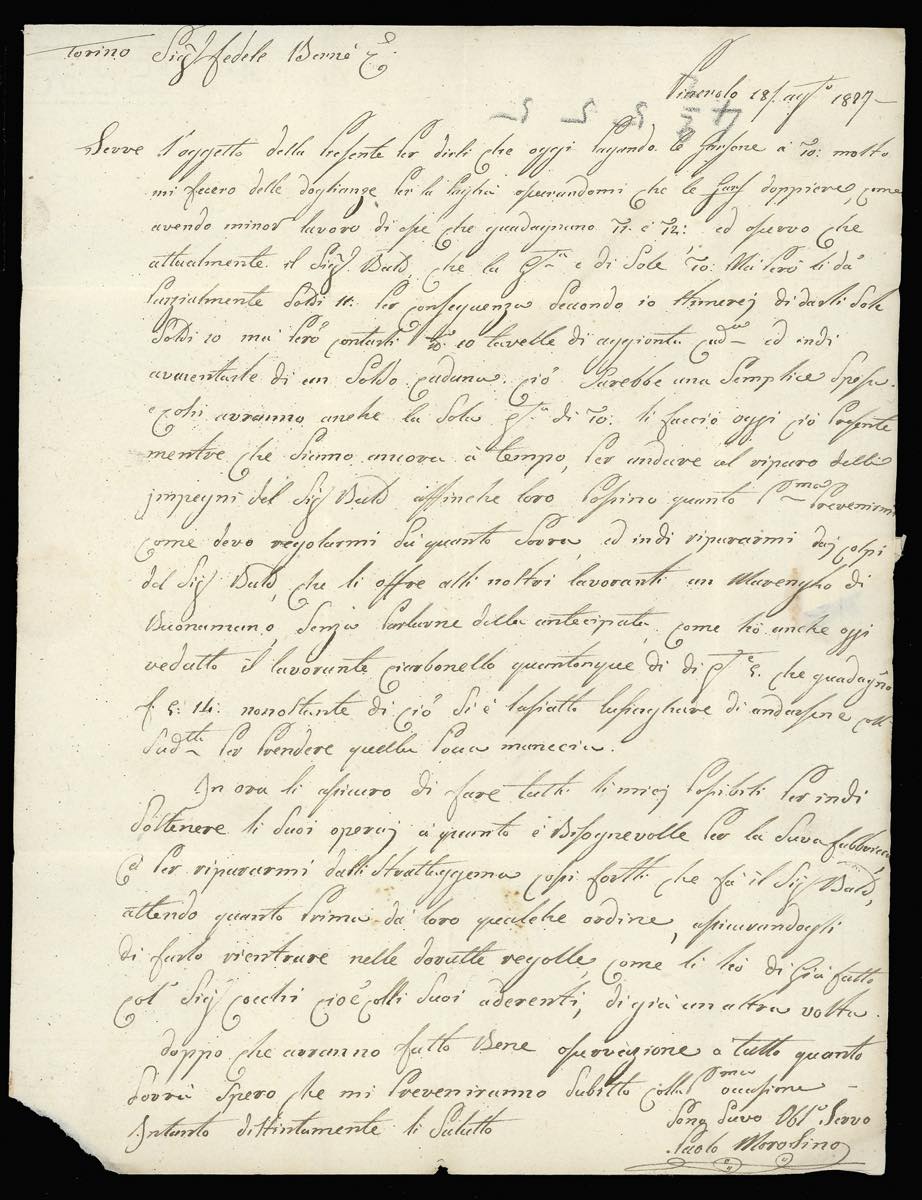 Torino Sigʳ fedele Bernè Cº
Pinerolo 18 agᵗº 1827
Serve l'oggetto della Presente per dirli che oggi pagando le Garzone a 10: molto
mi fecero delle doglianze per la paghà osservandomi che le doppiere, come
avendo minor lavoro di esse che guadagnano 11 e 12: ed osservo che
attualmente il Sigʳ Bald, che la e di Sole 10: Ma però li dà
Parzialmente Soldi 11: per conseguenza Secondo io di darli Sole
Soldi 10 ma però contarli 10 tavelle di aggionta ed indi
avmentarle di un Soldo caduna. ciò Sarebbe una Semplice Spesa
e così avranno anche la Sola di 10: li faccio oggi ciò presente
mentre che Siamo ancora à tempo, per andare al riparo delli
impegni del Sigʳ Bald affinche loro possino quanto Pᵐᵃ Prevenirmi
come devo regolarmi Sù quanto Sovra, ed indi ripararmi daj colpi
del Sigʳ Bald, che li offre alli nostri lavoranti un Marengho di
Buonamano, Senza parlarne della antecipata come hò anche oggi
vedutto il lavorante Ciarbonello quantonque di di che guadagno
f. 5: 14: nonostante di ciò Si è lasiatto lusinghare di andarsene coll
Sudᵗᵗº per prendere quella poca manccia.
In ora li assicuro di fare tutti li miej possibili per indi
Sostenere li Suoi operaj a quanto è Bisognevolle per la Suva fabbrica,
e per ripararmi dalli Strattaggema così fortti che fà il Sigʳ Bald,
attendo quanto prima da loro qualche ordine, assicurandogli
di farlo rientrare nelle dovutte regolle, come li hò di Già fatto
col Sigʳ Cocchi cioè colli Suoi aderenti, di già un altra volta.
doppo che avranno fatto Bene osservazione a tutto quanto
Sovra Spero che mi Preveniranno Subitto colla Pᵐᵃ occasione
Intanto disttintamente li Salutto
Sono Suvo Obbº Servo
Paolo Morosino